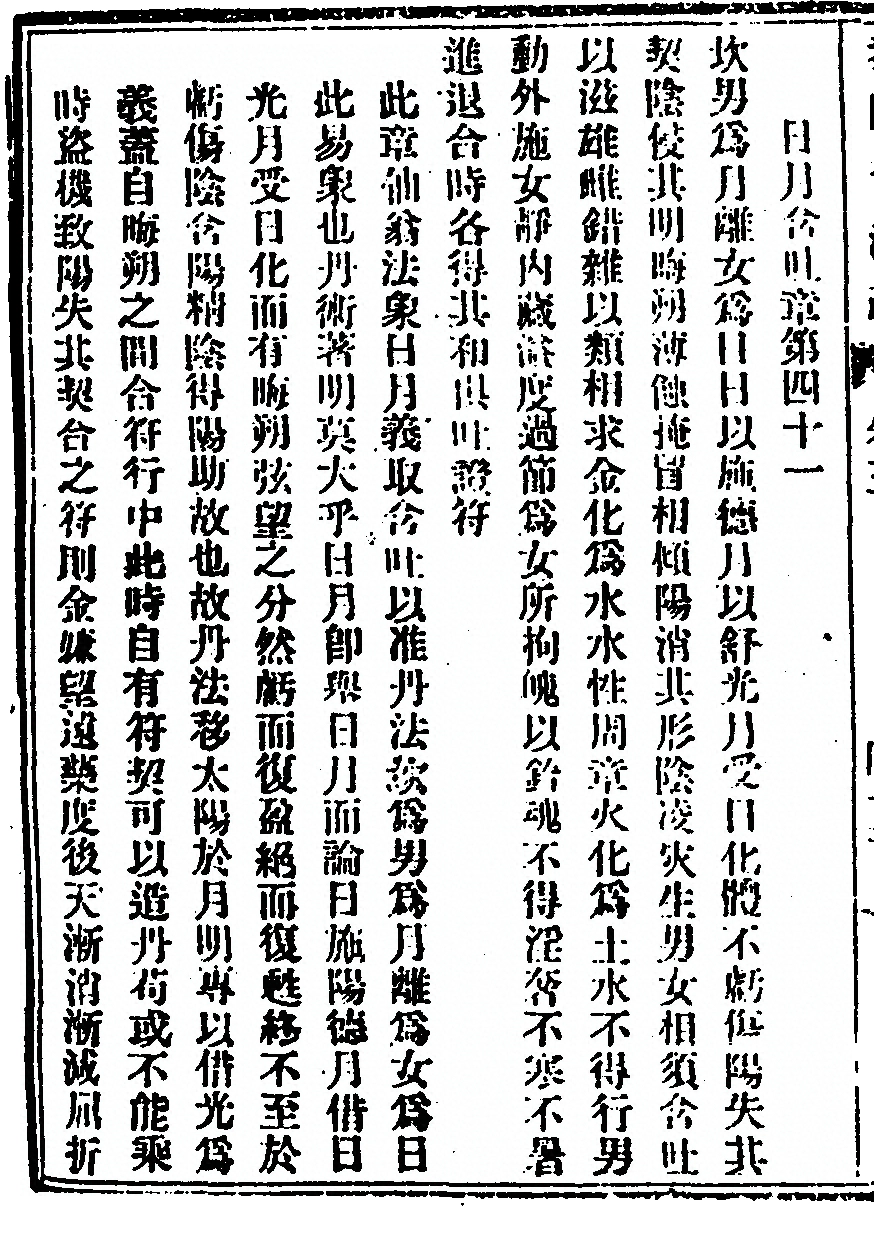 日月含吐章第四十一
坎男為月離女為日日以施德月以舒光月受日化體不虧傷陽失其
契陰侵其明晦朔薄蝕掩冒相傾陽消其形陰凌灾生男女相須含吐
以滋雄雌錯雜以類相求金化為水水性周章火化為土水不得行男
動外施女靜內藏溢度過節為女所拘魄以鈐魂不得淫奢不寒不暑
進退合時各得其和俱吐證符
此章仙翁法象日月義取含吐以准丹法故為男為月離為女為日
此易象也丹術著明莫大乎日月卽與日月而論日施陽德月借日
光月受日化而有晦朔弦望之分然虧而復盈絕而復甦終不至於
虧傷陰含陽精陰得陽助故也故丹法移太陽於月明專以借光為
義蓋自晦朔之間合符行中此時自有符契可以造丹苟或不能乘
時盜機致陽失其契合之符則金嫌望遠藥度後天漸消漸減屈折